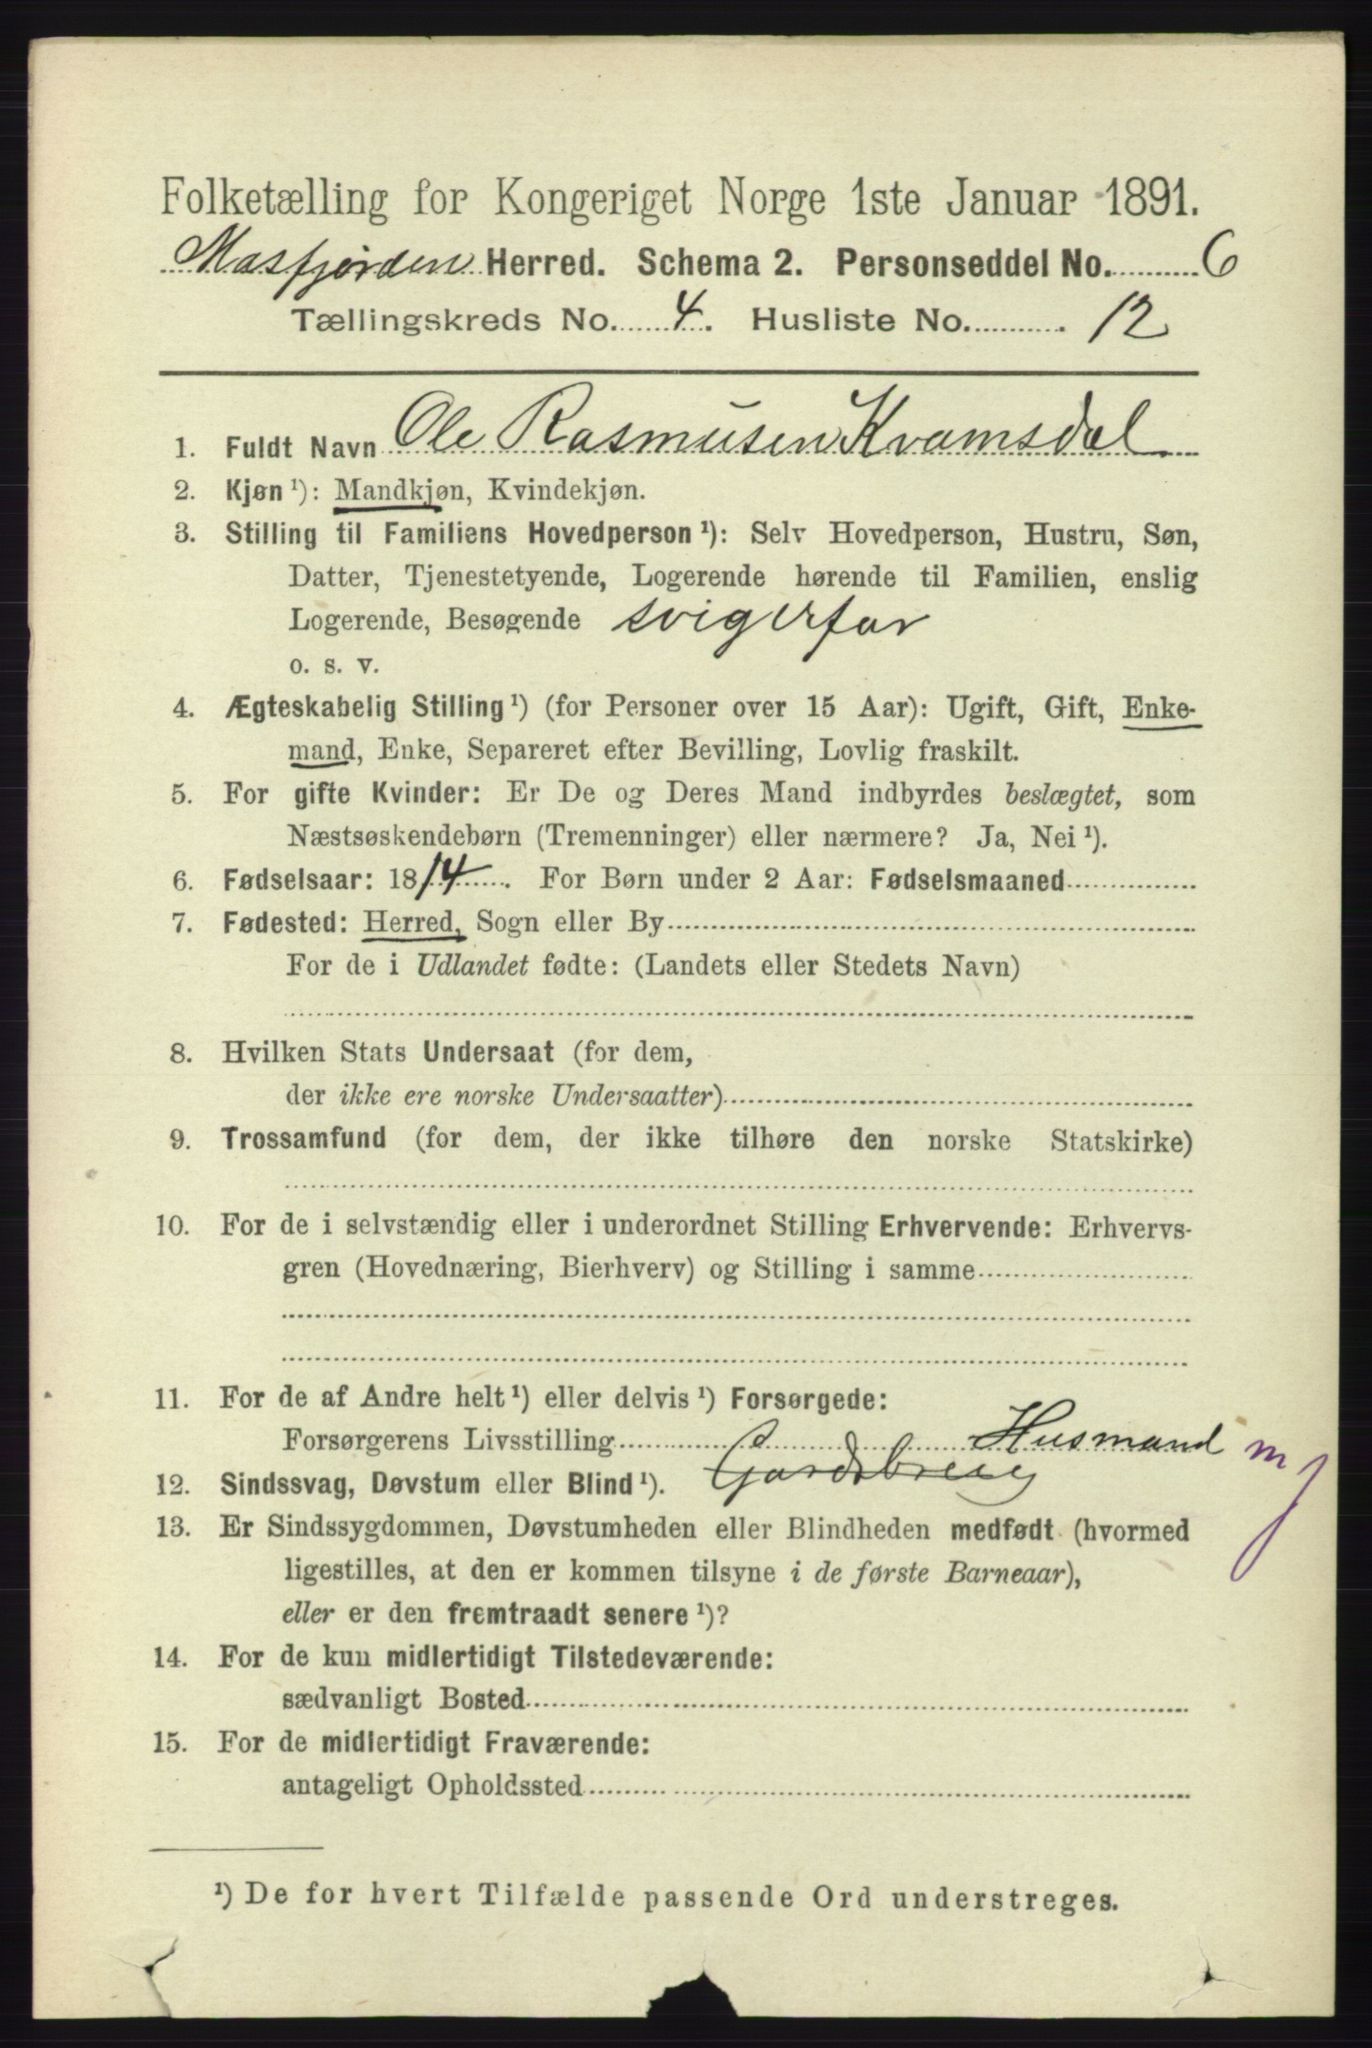 Folketælling for Kongeriget Norge 1ste Januar 1891.
Masfjorden Herred. Schema 2. Personseddel No. 6
Tællingskreds No. 4. Husliste No. 12
1. Fuldt Navn Ole Rasmusen Kvamsdal
2. Kjøn ¹): Mandkjøn, Kvindekjøn.
3. Stilling til Familiens Hovedperson ¹): Selv Hovedperson, Hustru, Søn,
Datter, Tjenestetyende, Logerende hørende til Familien, enslig
Logerende, Besøgende svigerfar
o. s. v.
4. Ægteskabelig Stilling ¹) (for Personer over 15 Aar): Ugift, Gift, Enke-
mand, Enke, Separeret efter Bevilling, Lovlig fraskilt.
5. For gifte Kvinder: Er De og Deres Mand indbyrdes beslægtet, som
Næstsøskendebørn (Tremenninger) eller nærmere? Ja, Nei ¹).
6. Fødselsaar: 1814. For Børn under 2 Aar: Fødselsmaaned
7. Fødested: Herred, Sogn eller By
For de i Udlandet fødte: (Landets eller Stedets Navn)
8. Hvilken Stats Undersaat (for dem,
der ikke ere norske Undersaatter)
9. Trossamfund (for dem, der ikke tilhøre den norske Statskirke)
10. For de i selvstændig eller i underordnet Stilling Erhvervende: Erhvervs-
gren (Hovednæring, Bierhverv) og Stilling i samme
11. For de af Andre helt ¹) eller delvis ¹) Forsørgede:
Forsørgerens Livsstilling Husmand m j
12. Sindssvag, Døvstum eller Blind ¹).
13. Er Sindssygdommen, Døvstumheden eller Blindheden medfødt (hvormed
ligestilles, at den er kommen tilsyne i de første Barneaar),
eller er den fremtraadt senere ¹)?
14. For de kun midlertidigt Tilstedeværende:
sædvanligt Bosted
15. For de midlertidigt Fraværende:
antageligt Opholdssted
¹) De for hvert Tilfælde passende Ord understreges.